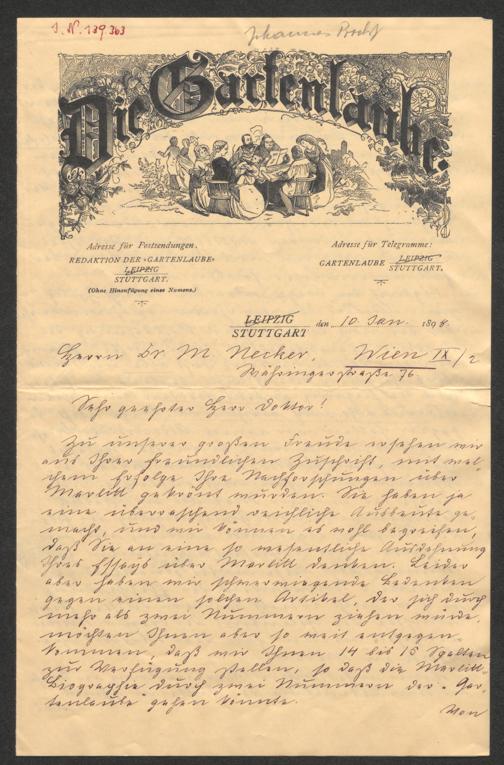 J. N. 139303
Johannes Proelß
Die Gartenlaube.
Adresse für Postsendungen:
REDAKTION DER «GARTENLAUBE»
LEIPZIG
STUTTGART.
(Ohne Hinzufügung eines Namens.)
Adresse für Telegramme:
GARTENLAUBE LEIPZIG
STUTTGART.
LEIPZIG
STUTTGART den 10. Jan. 1898.
Herrn Dr M Necker, Wien IX/2
Währingerstraße 76
Sehr geehrter Herr Doktor!
Zu unserer großen Freude ersehen wir
aus Ihrer freundlichen Zuschrift, mit wel-
chem Erfolge Ihre Nachforschungen über
Marlitt gekrönt wurden. Sie haben ja
eine überraschend reichliche Ausbeute ge-
macht, und wir können es wohl begreifen,
daß Sie an eine so wesentliche Ausdehnung
Ihres Essays über Marlitt denken. Leider
aber haben wir schwerwiegende Bedenken
gegen einen solchen Artikel, der sich durch
mehr als zwei Nummern ziehen würde,
möchten Ihnen aber so weit entgegen-
kommen, daß wir Ihnen 14 bis 15 Spalten
zur Verfügung stellen, so daß die Marlitt-
Biographie durch zwei Nummern der „Gar-
tenlaube gehen könnte.
Von